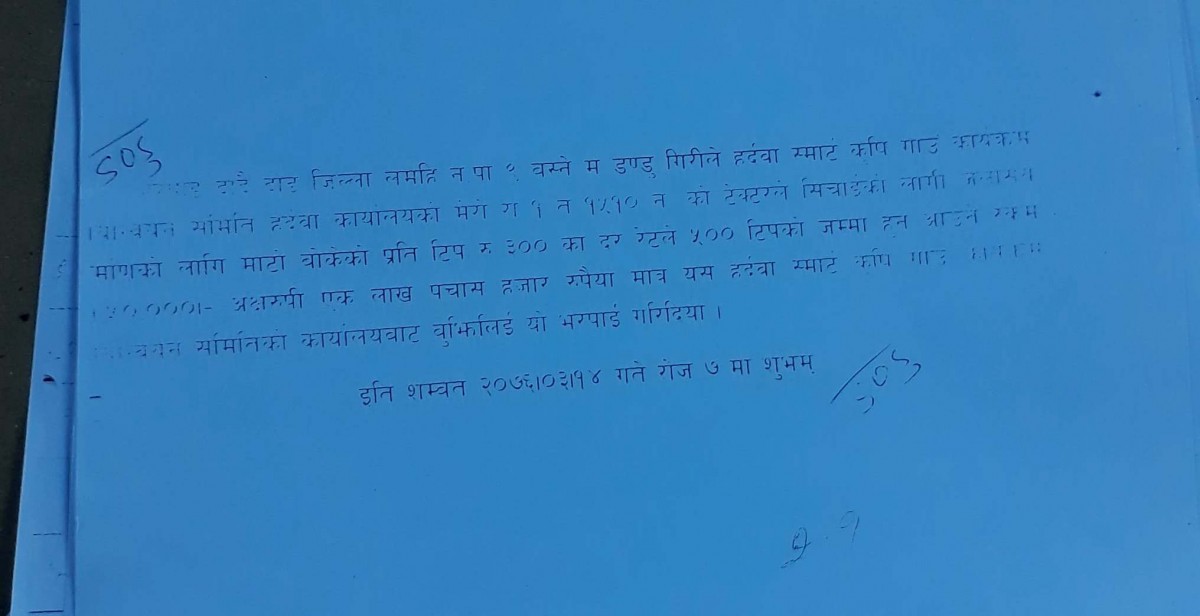 दाङ जिल्ला लमहि न पा १ वस्ने म डण्डु गिरीले हर्दवा स्मार्ट कृषि गाउ कार्यक्रम
समिति हर्दवा कार्यालयको मेरो रा १ त १५१० न को टेक्टरले सिंचाईको लागी
र्माणको लागि माटो बोकेको प्रति टिप रु ३०० का दर रेटले ५०० टिपको जम्मा हुन आउने रकम
१५००००।- अक्षरुपी एक लाख पचास हजार रुपैया मात्र यस हर्दवा स्मार्ट कृषि गाउ
समितिको कार्यालयबाट बुझिलिई यो भरपाई गरिदिया ।
इति शम्वत २०७६।०३।१४ गते रोज ७ मा शुभम्